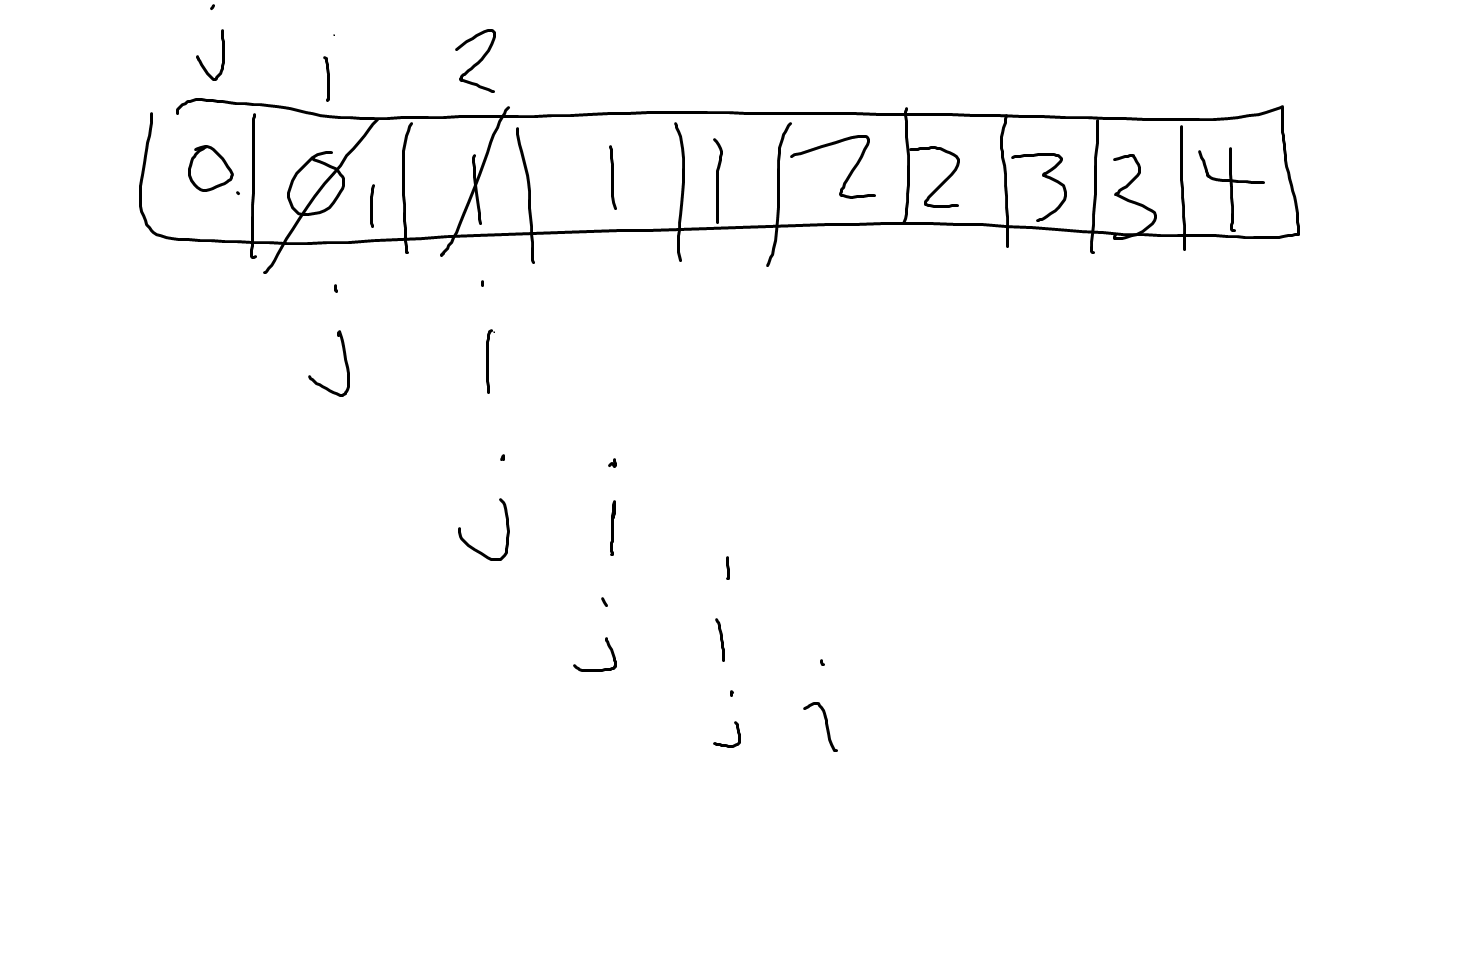 j i 2
0 0 1 1 1 1 2 2 3 3 4
j i
j i
j i
j i